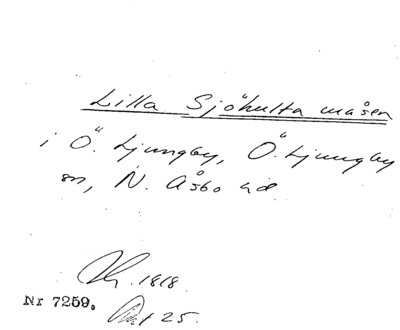 Lilla Sjöhulta måsen
i Ö. Ljungby, Ö. Ljungby
sn, N. Åsbo hd
1818
Nr 7259.
25.